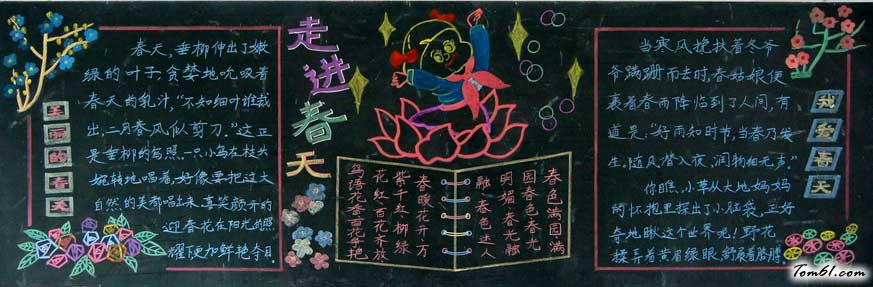 美丽的春天
春天，垂柳伸出了嫩
绿的叶子，贪婪地吮吸着
春天的乳汁，“不知细叶谁裁
出，二月春风似剪刀。”这正
是垂柳的写照。一只小鸟在枝头
婉转地唱着，好像要把这大
自然的美都唱出来，喜笑颜开的
迎春花在阳光的照
耀下更加鲜艳夺目
走进春天
春色满园满
园春色春光
明媚春光融
融春色迷人
春暖花开万
紫千红柳绿
花红百花齐放
鸟语花香百花争艳
我爱春天
当寒风搀扶着冬爷
爷蹒跚而去时，春姑娘便
裹着春雨降临到了人间，有
道是：“好雨知时节，当春乃发
生。随风潜入夜，润物细无声”
你瞧，小草从大地妈妈
的怀抱里探出了小脑袋，正好
奇地瞅这个世界呢！野花
接弄着黄眉绿眼，舒展着胳膊
Tom61.com